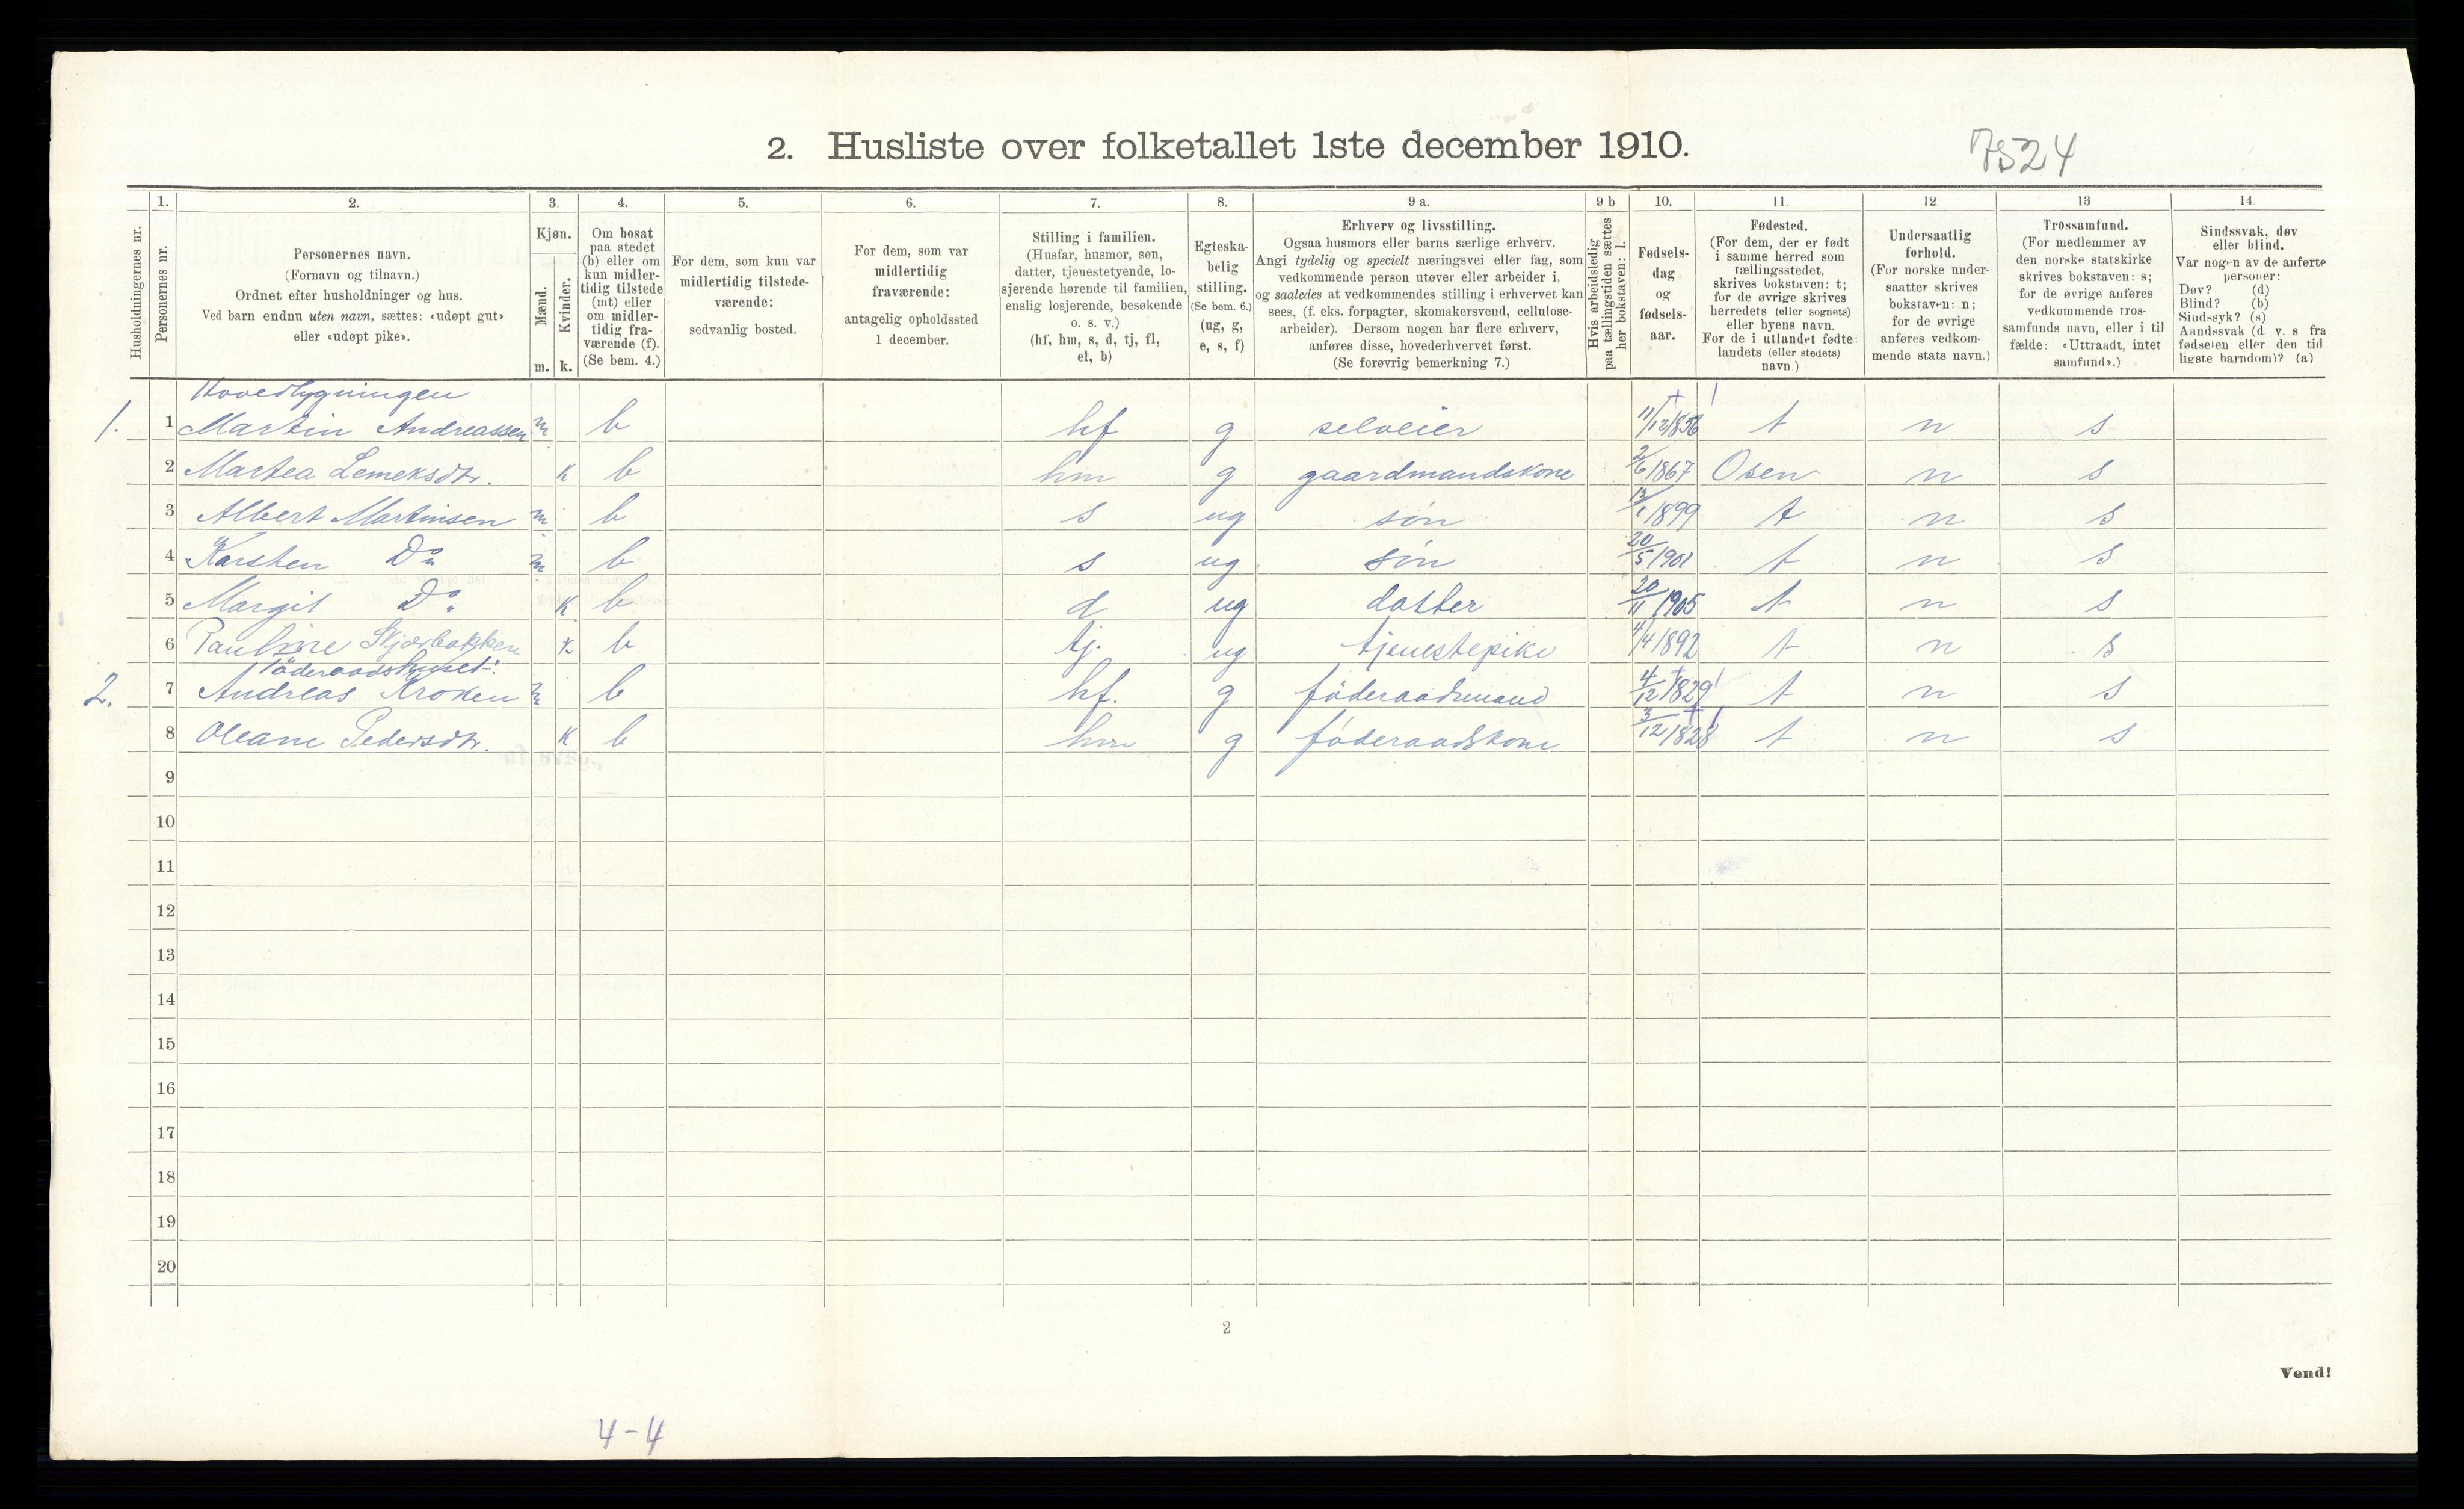 2. Husliste over folketallet 1ste december 1910.
7524
1. 2. 3. 4. 5. 6. 7. 8. 9 a. 9 b 10. 11. 12 13 14.
Husholdningernes nr.
Personernes nr.
Personernes navn.
(Fornavn og tilnavn.)
Ordnet efter husholdninger og hus.
Ved barn endnu uten navn, sættes: «udøpt gut»
eller «udøpt pike».
Kjøn.
Mænd.
Kvinder.
m. k.
Om bosat
paa stedet
(b) eller om
kun midler-
tidig tilstede
(mt) eller
om midler-
tidig fra-
værende (f).
(Se bem. 4.)
For dem, som kun var
midlertidig tilstede-
værende:
sedvanlig bosted.
For dem, som var
midlertidig
fraværende:
antagelig opholdssted
1 december.
Stilling i familien.
(Husfar, husmor, søn,
datter, tjenestetyende, lo-
sjerende hørende til familien,
enslig losjerende, besøkende
o. s. v.)
(hf, hm, s, d, tj, fl,
el, b)
Egteska-
belig
stilling.
(Se bem. 6.)
(ug, g,
e, s, f)
Erhverv og livsstilling.
Ogsaa husmors eller barns særlige erhverv.
Angi tydelig og specielt næringsvei eller fag, som
vedkommende person utøver eller arbeider i,
og saaledes at vedkommendes stilling i erhvervet kan
sees, (f. eks. forpagter, skomakersvend, cellulose-
arbeider). Dersom nogen har flere erhverv,
anføres disse, hovederhvervet først.
(Se forøvrig bemerkning 7.)
Hvis arbeidsledig
paa tællingstiden sættes
her bokstaven: l.
Fødsels-
dag
og
fødsels-
aar.
Fødested.
(For dem, der er født
i samme herred som
tællingsstedet,
skrives bokstaven: t;
for de øvrige skrives
herredets (eller sognets)
eller byens navn.
For de i utlandet fødte:
landets (eller stedets)
navn.)
Undersaatlig
forhold.
(For norske under-
saatter skrives
bokstaven: n;
for de øvrige
anføres vedkom-
mende stats navn.)
Trossamfund.
(For medlemmer av
den norske statskirke
skrives bokstaven: s;
for de øvrige anføres
vedkommende tros-
samfunds navn, eller i til
fælde: «Uttraadt, intet
samfund».)
Sindssvak, døv
eller blind.
Var nogen av de anførte
personer:
Døv? (d)
Blind? (b)
Sindssyk? (s)
Aandssvak (d v. s fra
fødselen eller den tid
ligste barndom)? (a)
Hovedbygningen
1. 1 Martin Andreassen m b hf g selveier 11/12 1856 t n s
2 Martea Lemeksdtr. k b hm g gaardmandskone 2/6 1867 Osen n s
3 Albert Martinsen m b s ug søn 13/1 1899 t n s
4 Karsten Do m b s ug søn 20/5 1901 t n s
5 Margit Do. k b d ug datter 20/11 1905 t n s
6 Pauline Skjærbakken k b tj. ug tjenestepike 4/4 1892 t n s
Föderaadshuset:
2. 7 Andreas Kroken m b hf. g föderaadsmand 4/12 1829 t n s
8 Oleane Pedersdtr. k b hm g föderaadskone 3/12 1828 t n s
9
10
11
12
13
14
15
16
17
18
19
20
2
Vend!
4-4